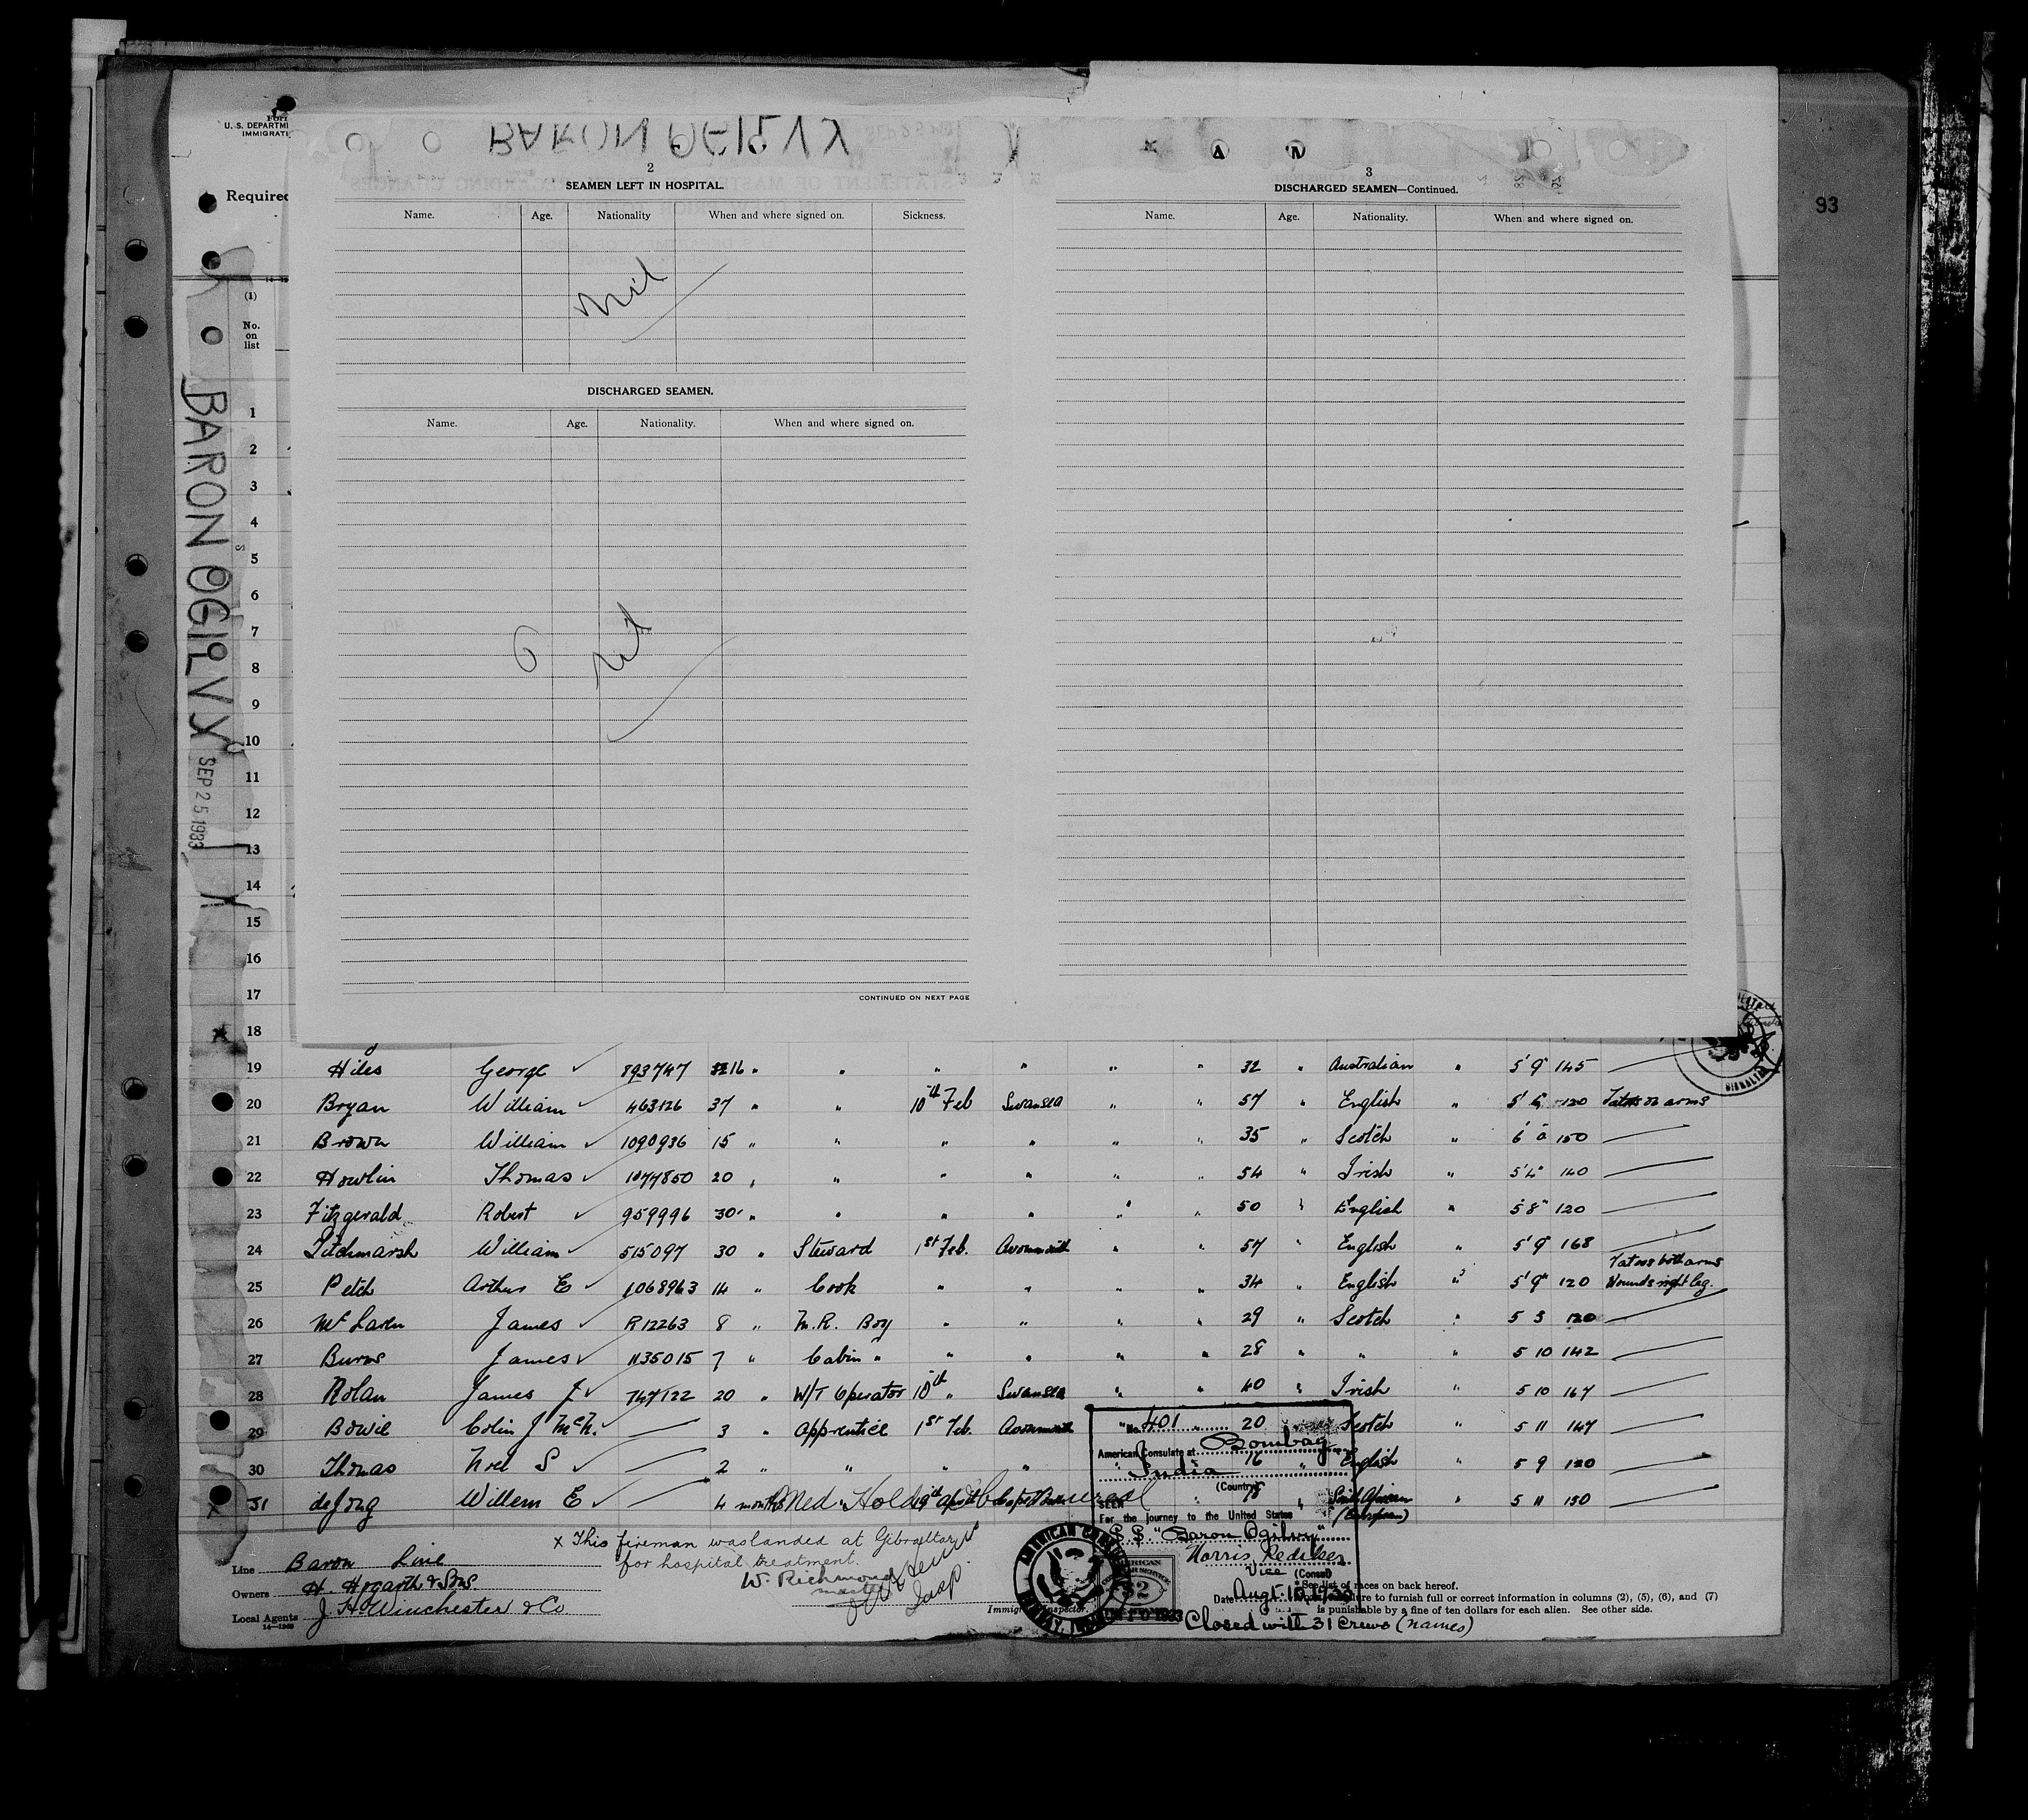 U. S. DEPARTM
IMMIGRATI
Required
93
BARON OGILVY
SEP 25 1933
2
SEAMEN LEFT IN HOSPITAL.
Name. Age. Nationality When and where signed on. Sickness.
Nil
DISCHARGED SEAMEN.
Name. Age. Nationality. When and where signed on.
Nil
CONTINUED ON NEXT PAGE
3
DISCHARGED SEAMEN—Continued.
Name. Age. Nationality. When and where signed on.
(1)
No.
on
list
1
2
3
4
5
6
7
8
9
10
11
12
13
14
15
16
17
x 18
19 Hiles George ✓ 893747 16 " " " " " " 32 " Australian " 5' 9" 145
20 Bryan William ✓ 463126 37 " " 10th Feb Swansea " " 57 " English " 5' 6 120 Tatoo on arms
21 Brown William ✓ 1090936 15 " " " " " " 35 " Scotch " 6' 0" 150
22 Howlin Thomas ✓ 1077850 20 " " " " " " 54 " Irish " 5' 4" 140
23 Fitzgerald Robert ✓ 959996 30 " " " " " " 50 " English " 5 8" 120
24 Titchmarsh William ✓ 515097 30 " Steward 1st Feb. Avonmouth " " 57 " English " 5' 9" 168
25 Petch Arthur E ✓ 1068963 14 " Cook " " " " 34 " English " 5' 9" 120 Tatoos both arms Wounds right leg.
26 McLaren James ✓ R12263 8 " M.R. Boy " " " " 29 " Scotch " 5 3 120
27 Burns James ✓ 1135015 7 " Cabin " " " " " 28 " " " 5 10 142
28 Nolan James J ✓ 747122 20 " W/T Operator 10th " Swansea " " 40 " Irish " 5 10 167
29 Bowie Colin J McN. ✓ 3 " Apprentice 1st Feb. Avonmouth " " 20 Scotch " 5 11 147
30 Thomas Noel S ✓ 2 " " " " " 16 " English " 5 9 120
x 31 de Jong Willem E ✓ 4 months 19th April 18 " South African (European) " 5 11 150
No. 401
American Consulate at Bombay
India
(Country)
SEEN
For the journey to the United States
S.S. "Baron Ogilvy"
Vice (Consul)
Date Augt. 10, 1933
AMERICAN
$2
x This fireman was landed at Gibraltar
for hospital treatment.
W. Richmond
master
Line Baron Line
Owners H. Hogarth & Sons.
Local Agents J H Winchester & Co
14—1240
Immigrant Inspector.
See list of races on back hereof.
to furnish full or correct information in columns (2), (5), (6), and (7)
is punishable by a fine of ten dollars for each alien. See other side.
Closed with 31 crews (names)